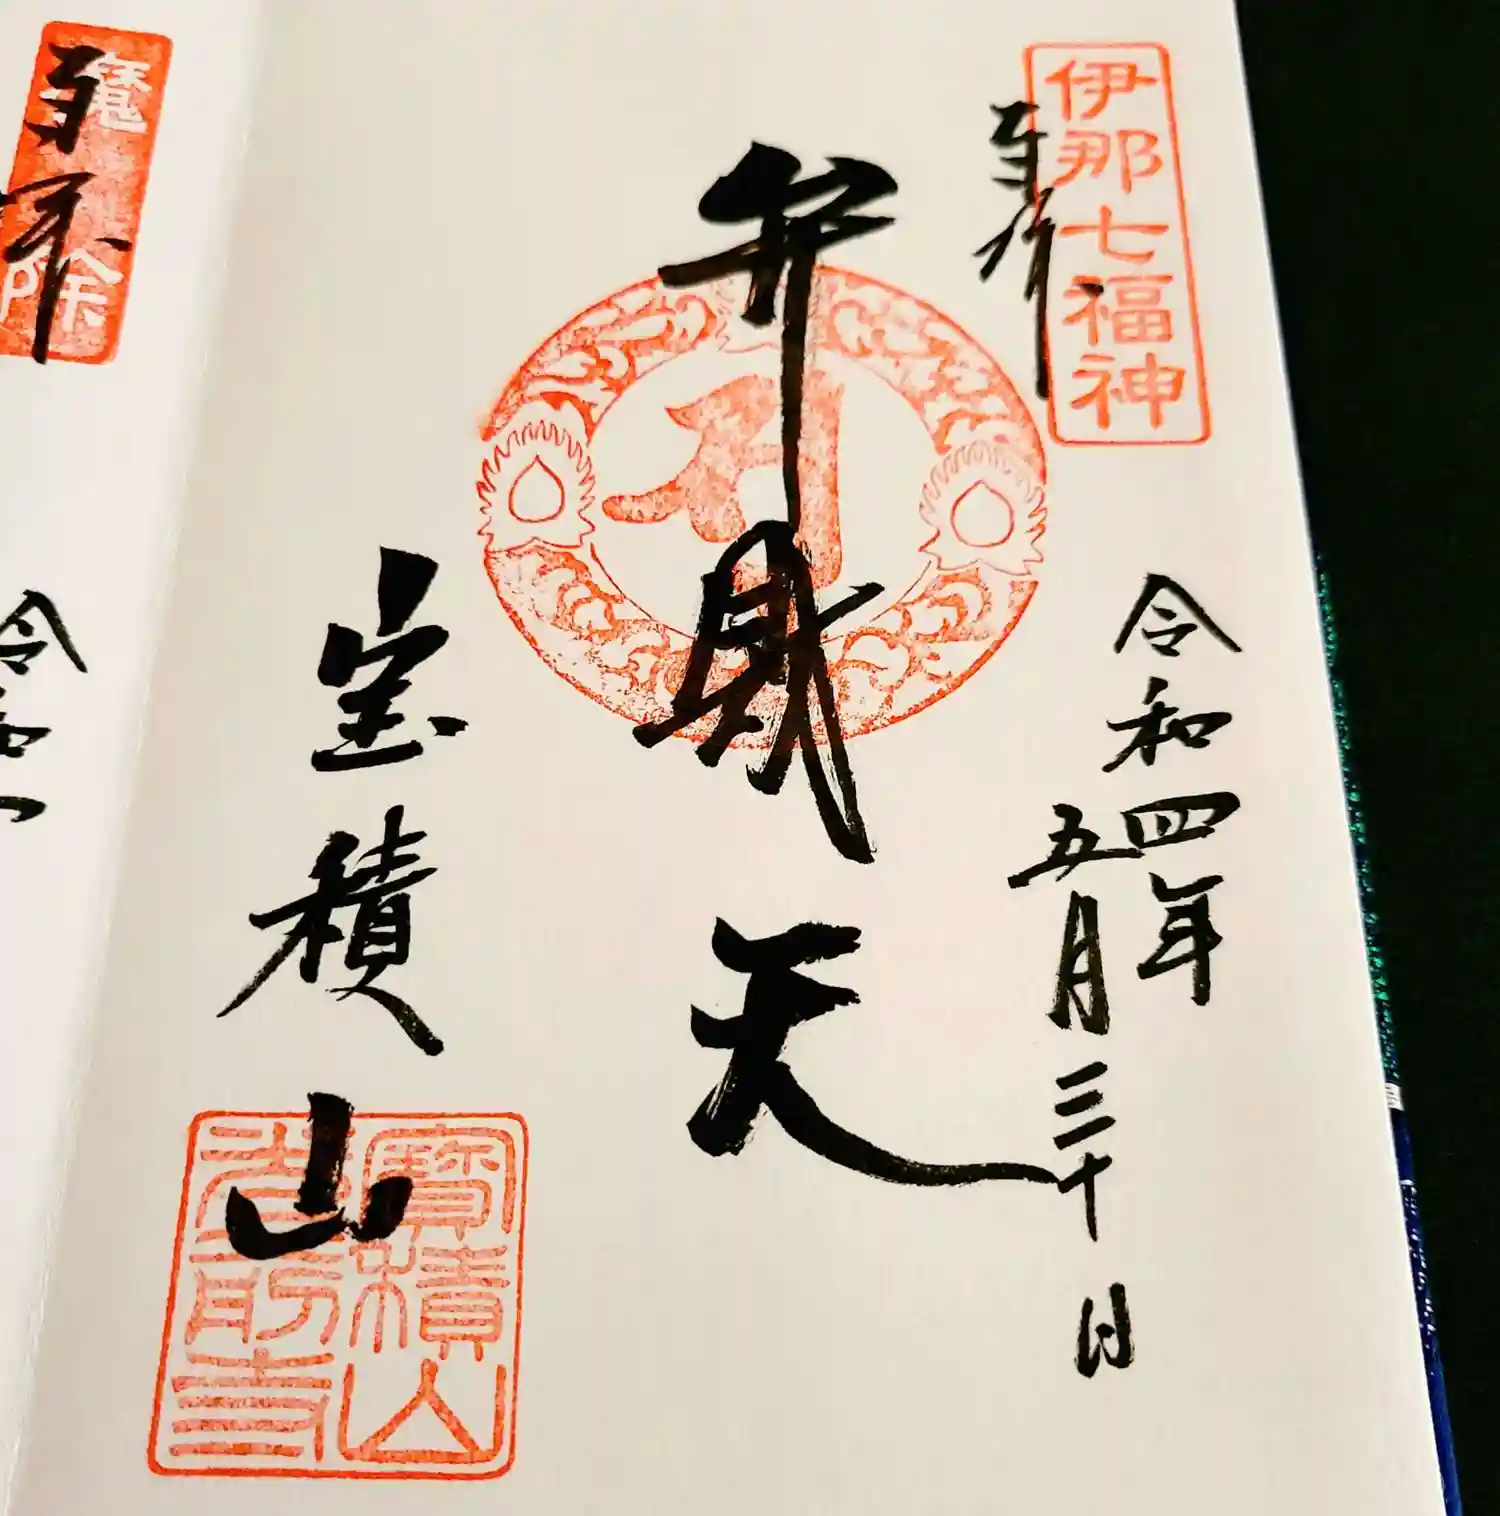 伊那七福神
奉拝
令和四年
五月三十日
弁財天
宝積山
寳積山
光前寺
魔除
奉拝
令和